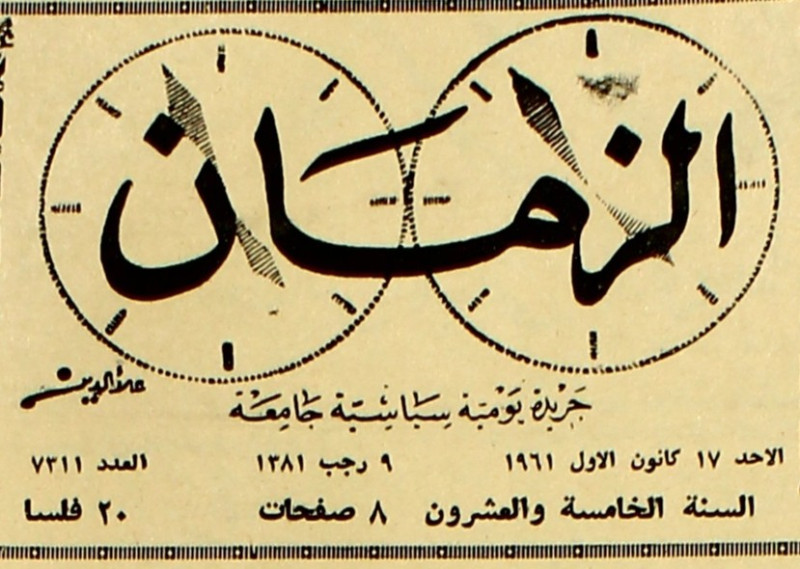 الزمان
علاءالدين
جَريْدة يَوْميّة سِيَاسِيّة جَامِعَة
الاحد ١٧ كانون الاول ١٩٦١ ٩ رجب ١٣٨١ العدد ٧٣١١
السنة الخامسة والعشرون ٨ صفحات ٢٠ فلسا